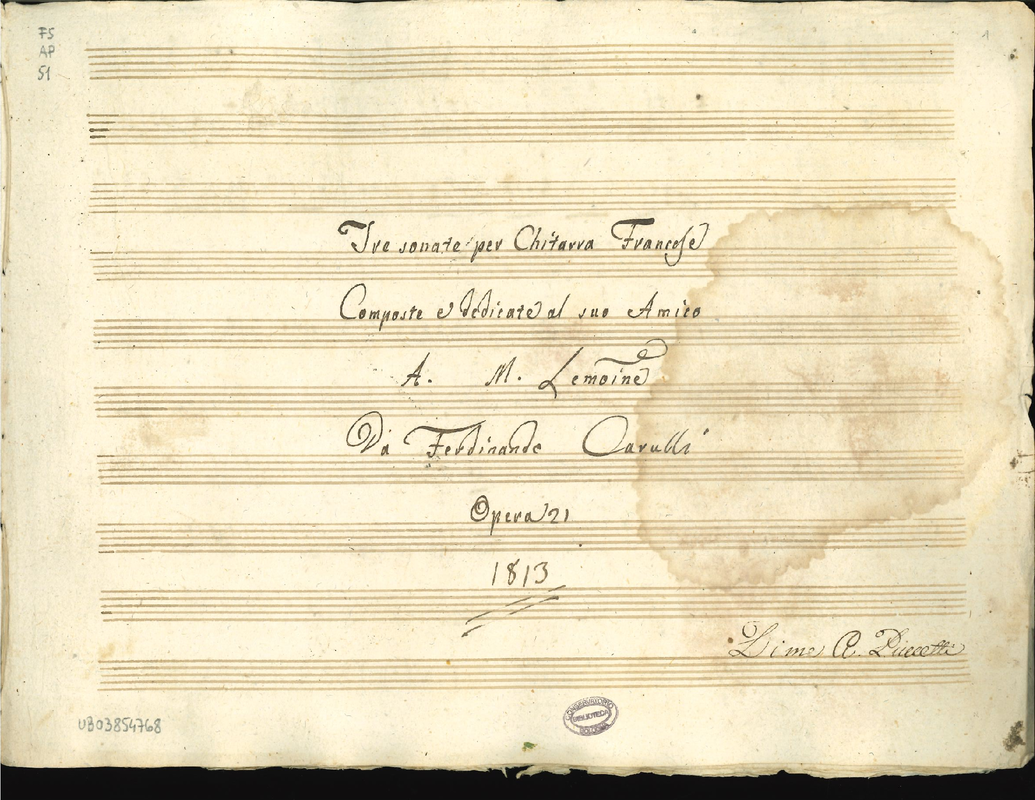 FS
AP
51
1
Tre sonate per Chitarra Francese
Composte e dedicate al suo Amico
A. M. Lemoine
Da Ferdinando Carulli
Opera 21
1813
A. Puccetti
UB03854768
CONSERVATORIO
BIBLIOTECA
BOLOGNA